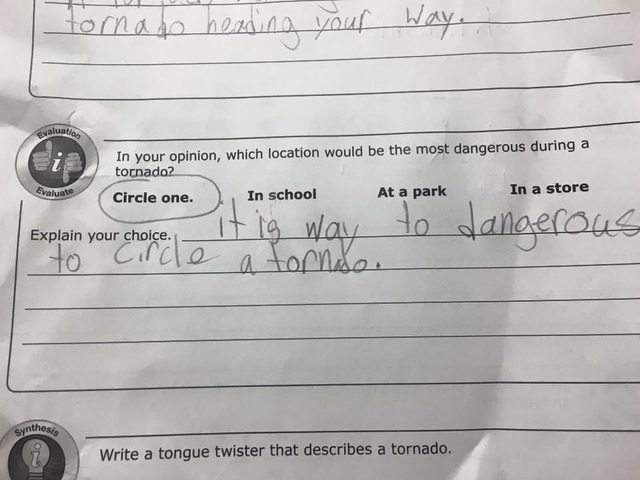 tornado heading your way.
Evaluation
Evaluate
In your opinion, which location would be the most dangerous during a
tornado?
Circle one. In school At a park In a store
Explain your choice. it is way to dangerous
to circle a tornado.
Synthesis
Write a tongue twister that describes a tornado.